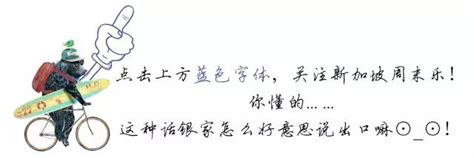 点击上方蓝色字体，关注新加坡周末乐！
你懂的……
这种话银家怎么好意思说出口嘛⊙_⊙！